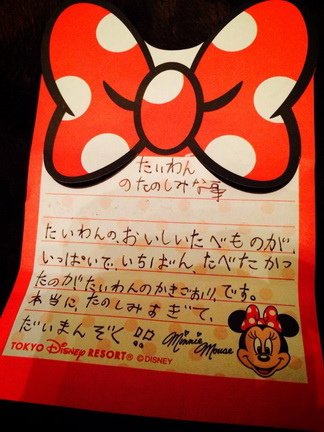 たいわん
のたのしみな事
たいわんの、おいしいたべものが、
いっぱいで、いちばん、たべたかっ
たのがたいわんのかきごおり、です。
本当に、たのしみすぎて、
だいまんぞく!!
Minnie Mouse
TOKYO Disney RESORT® © DISNEY